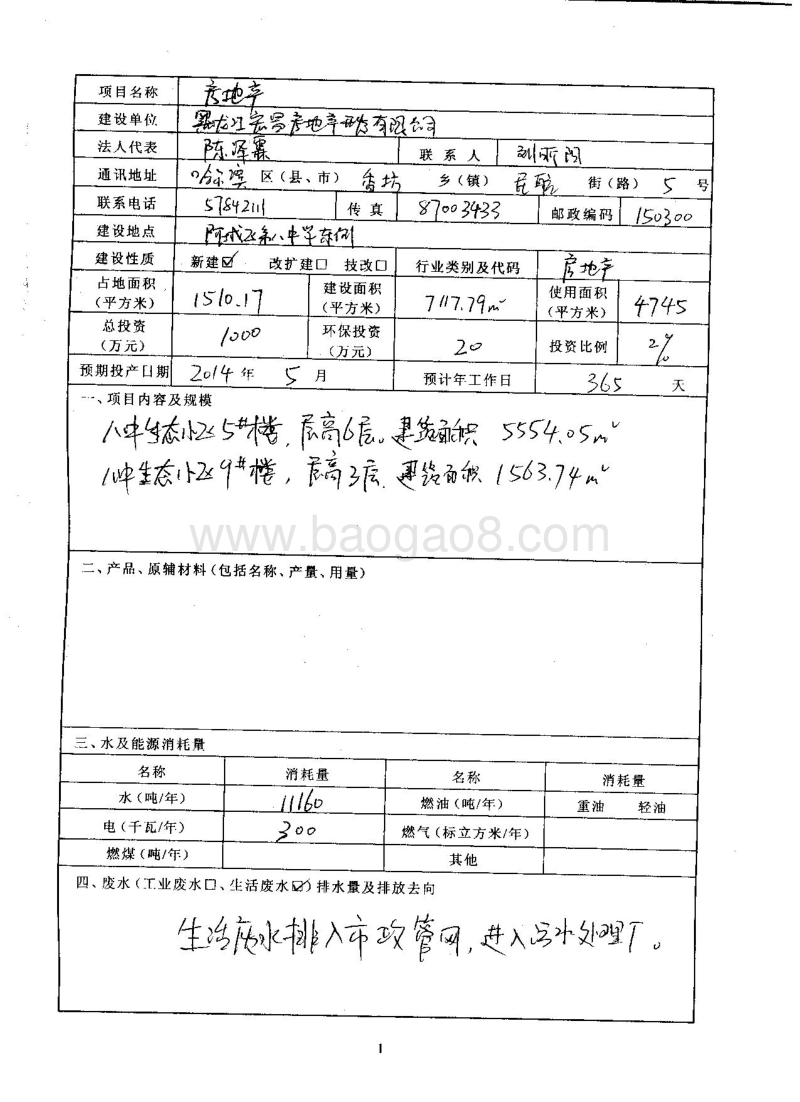 项目名称 房地产
建设单位 黑龙江宏昌房地产开发有限公司
法人代表 陈泽霖 联系人
通讯地址 哈尔滨 区(县、市) 香坊 乡(镇) 街(路) 5 号
联系电话 57842111 传真 87003433 邮政编码 150300
建设地点 阿城区第八中学东侧
建设性质 新建☑ 改扩建□ 技改□ 行业类别及代码 房地产
占地面积(平方米) 1510.17 建设面积(平方米) 7117.79m² 使用面积(平方米) 4745
总投资(万元) 1000 环保投资(万元) 20 投资比例 2%
预期投产日期 2014年 5月 预计年工作日 365 天
一、项目内容及规模
八中生态小区5#楼,层高6层。建筑面积 5554.05m²
八中生态小区9#楼,层高3层.建筑面积 1563.74m²
www.baogao8.com
二、产品、原辅材料(包括名称、产量、用量)
三、水及能源消耗量
名称 消耗量 名称 消耗量
水(吨/年) 11160 燃油(吨/年) 重油 轻油
电(千瓦/年) 300 燃气(标立方米/年)
燃煤(吨/年) 其他
四、废水(工业废水□、生活废水☑)排水量及排放去向
生活废水排入市政管网,进入污水处理厂。
1